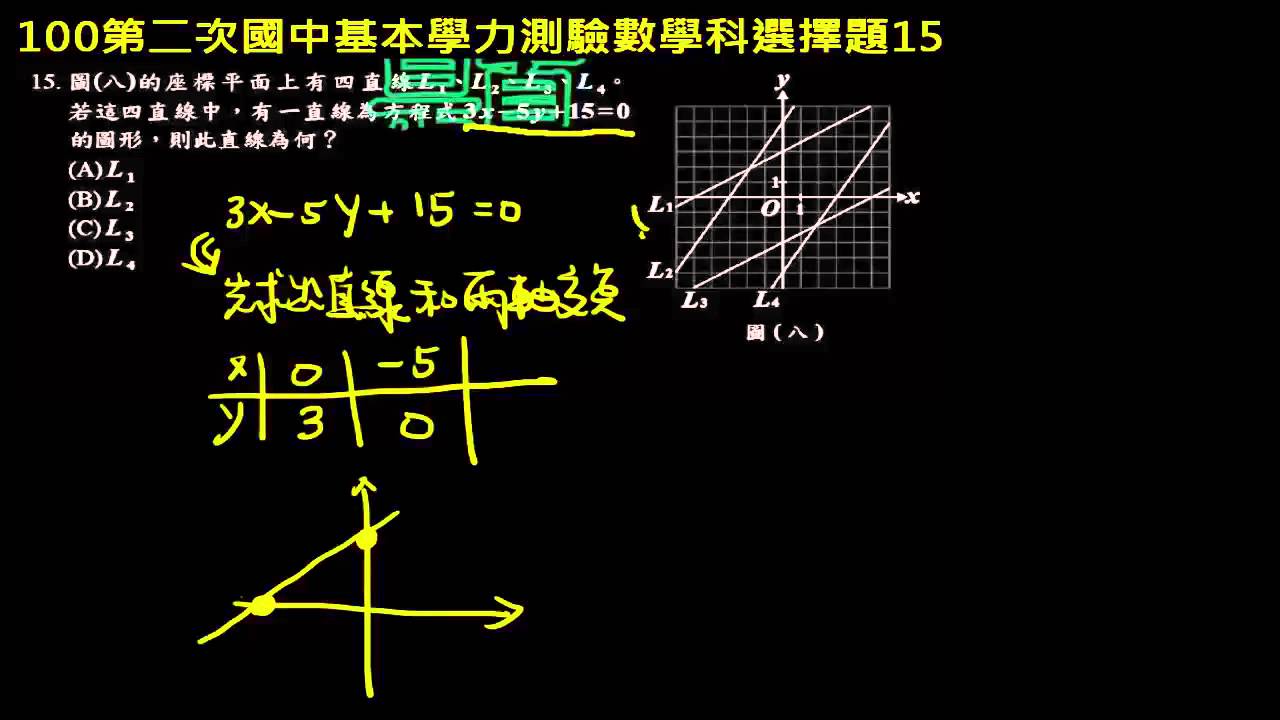 100第二次國中基本學力測驗數學科選擇題15
15. 圖(八)的座標平面上有四直線L₁、L₂、L₃、L₄。
若這四直線中，有一直線為方程式3x-5y+15=0
的圖形，則此直線為何？
(A) L₁
(B) L₂
(C) L₃
(D) L₄
3x-5y+15=0
先求出直線和兩軸交點
x 0 -5
y 3 0
y
1
x
O 1
L₁
L₂
L₃ L₄
圖(八)